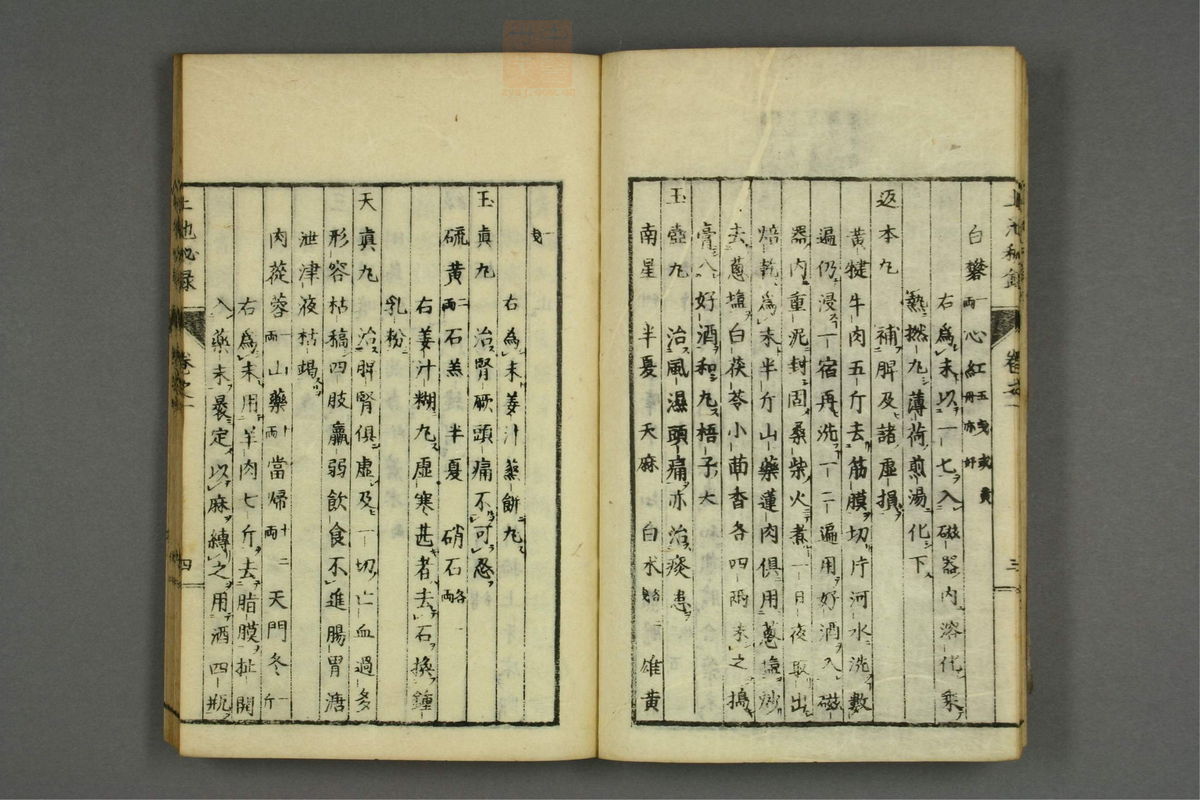 白礬一兩心紅五戔或黄丹亦好
右爲末以一七入磁器内溶化乘
熱撚丸薄荷煎湯化下
返本丸　補脾及諸虛損
黄犍牛肉五斤去筋膜切片河水洗數
遍仍浸一宿再洗一二遍用好酒入磁
器内重泥封固桑柴火煮一日夜取出
焙乾爲末半斤山藥蓮肉俱用蔥塩炒
去蔥塩白茯苓小茴香各四兩末之搗
膏入好酒和丸梧子大
玉壺丸　治風濕頭痛亦治痰患
南星　半夏　天麻　白水　雄黄
上池秘録　卷之一　三
戔
右爲末姜汁蒸餅丸
玉眞丸　治腎厥頭痛不可忍
硫黄二兩石羔　半夏　硝石各一兩
右姜汁糊丸虛寒甚者去石換鍾
乳粉
天眞丸　治脾腎俱虛及一切亡血過多
形容枯稿四肢羸弱飲食不進腸胃溏
泄津液枯竭
肉蓯蓉十兩山藥十兩當帰十二兩天門冬一斤
右爲末用羊肉七斤去脂膜批開
入藥末裹定以麻縛之用酒四瓶
上池秘録　卷之一　四